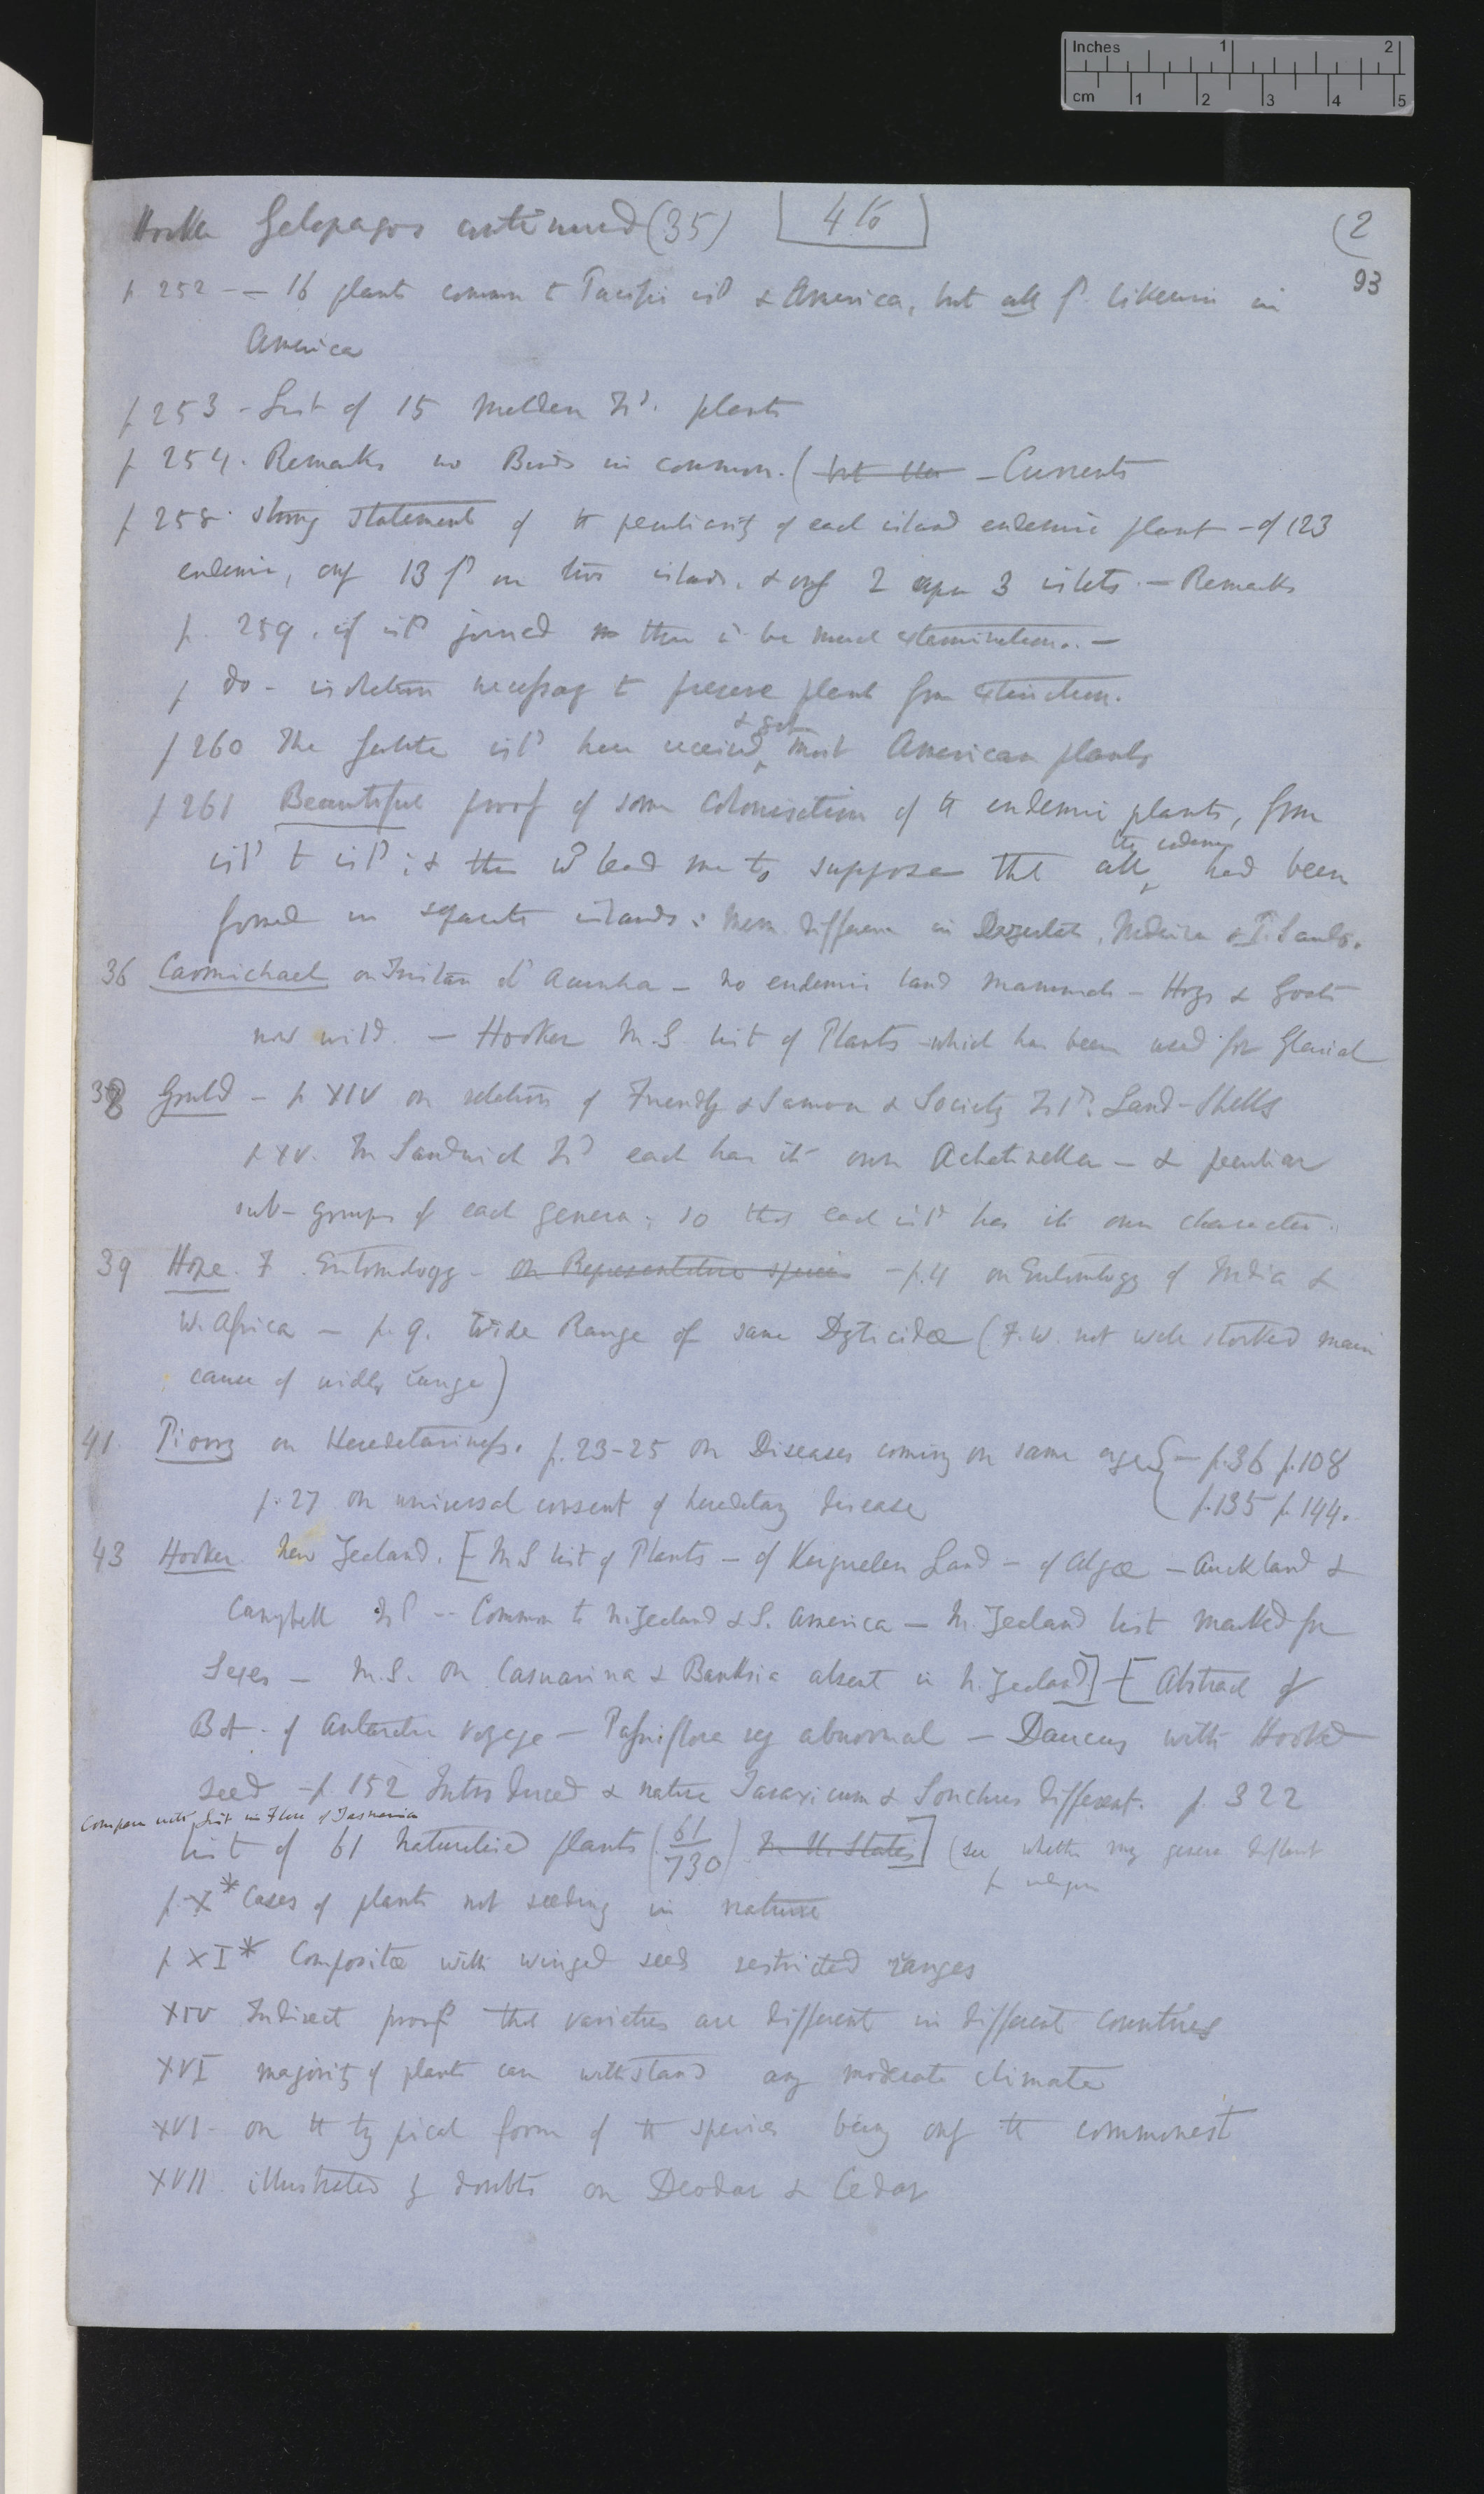 Inches 1 2
cm 1 2 3 4 5
Hooker Galapagos continued (35) [4to] (2
93
p. 252 — 16 plants common to Pacific isld & America, but all fd. likewise in
America
p 253 – List of 15 Malden Isd. plants
p 254. Remarks no Birds in common. ( but – Currents
p 258. strong statement of the peculiarity of each island endemic plant – of 123
endemic, only 13 fd on two islands. & only 2 upon 3 islets. – Remarks
p. 259. if isld joined there wd be much extermination. —
p do – isolation necessary to preserve plants from extinction.
p 260 The isld have received most American plants
& got
p 261 Beautiful proof of some Colonisation of the endemic plants, from
isld to isld; & this wd lead me to suppose that all had been
the endemic
formed in separate islands: difference in Dezertas, Madeira & P. Santo.
36 Carmichael on Tristan d'Acunha – no endemic land mammals – Hogs & Goats
now wild. – Hooker M.S. list of Plants which has been used for Glacial
38 Gould – p XIV on relation of Friendly & Samoa & Society Isld. Land-Shells
p XV. In Sandwich Isd each has its own Achatinella – & peculiar
sub-groups of each genera; so that each isld has its own character.
39 Hope. F. Entomology – on Representative species – p. 4 on Entomology of India &
W. Africa – p. 9. Wide Range of same Dyticidæ (F. W. not well stocked main
cause of widely range)
41 Piorry on Hereditariness. p. 23-25 on Diseases coming on same age { – p. 36 p. 108
p. 27 on universal consent of hereditary disease p. 135 p. 144.
43 Hooker New Zealand. [M.S list of Plants – of Kerguelen Land – of Algæ – Auckland &
Campbell Isd -- Common to N. Zealand & S. America – N. Zealand list marked for
Sexes – M.S. on Casuarina & Banksia absent in N. Zealand] – [Abstract of
Bot. of Antarctic Voyage – Passiflora abnormal – Daucus with Hooked
seed – p. 152 Introduced & native Taraxicum & Sonchus different. p. 322
Compare with list in Flora of Tasmania
list of 61 Naturalised plants (61/730) In U. States] (see whether any genera different
p X* Cases of plants not seeding in nature
p XI* Compositæ with winged seeds restricted ranges
XIV Indirect proof that varieties are different in different countries
XVI majority of plants can withstand any moderate climate
XVI – on the typical form of the species being only the commonest
XVII illustrated by doubts on Deodar & Cedar